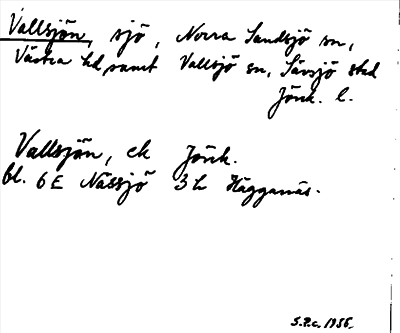 Vallsjön, sjö, Norra Sandsjö sn,
Västra hd, samt Vallsjö sn, Sävsjö stad
Jönk. l.
Vallsjön, ek Jönk.
bl. 6E Nässjö 3h Hägganäs.
S.P.c. 1956.